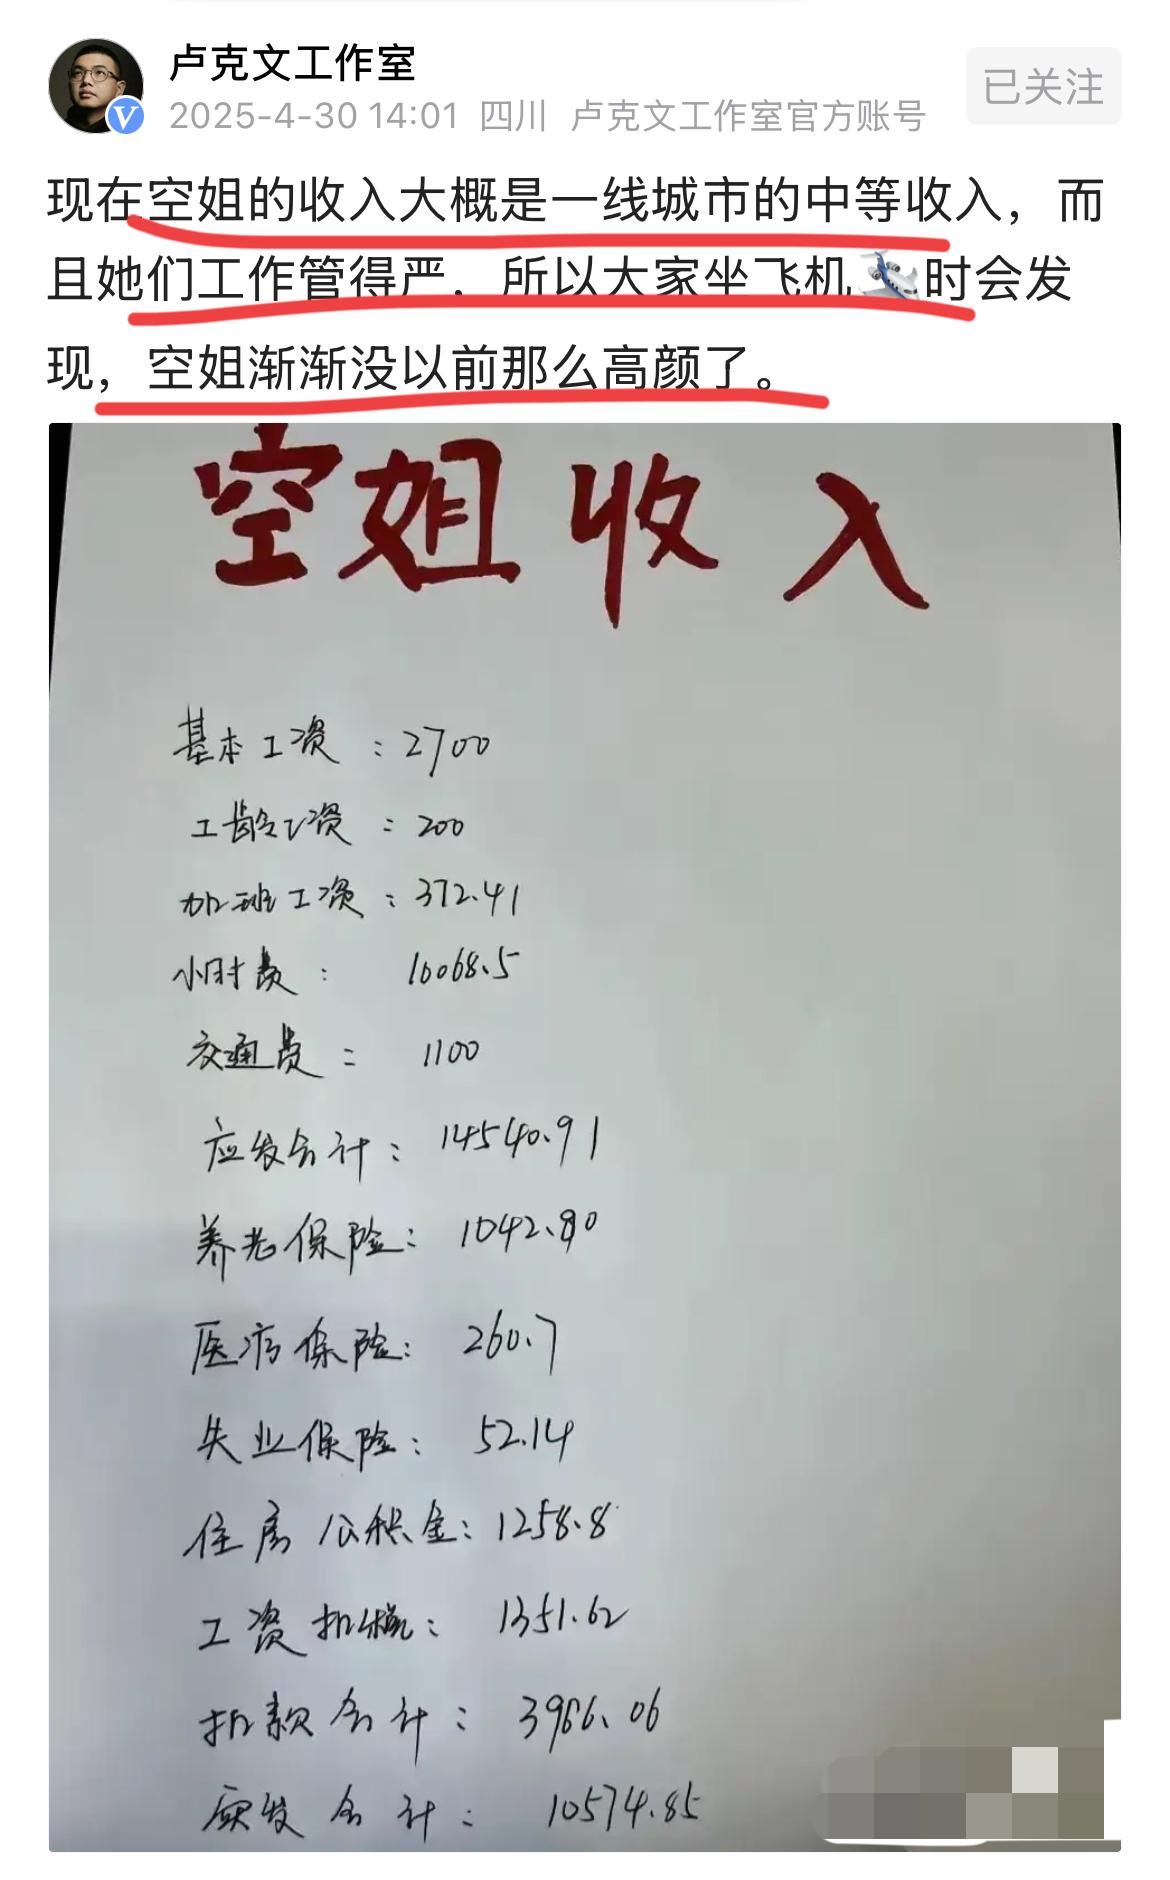 卢克文工作室
2025-4-30 14:01 四川 卢克文工作室官方账号
已关注
现在空姐的收入大概是一线城市的中等收入，而
且她们工作管得严，所以大家坐飞机✈️时会发
现，空姐渐渐没以前那么高颜了。
空姐收入
基本工资：2700
工龄工资：200
加班工资：372.41
小时费：10068.5
交通费：1100
应发合计：14540.91
养老保险：1042.80
医疗保险：260.7
失业保险：52.14
住房公积金：1258.8
工资扣税：1351.62
扣款合计：3966.06
实发合计：10574.85